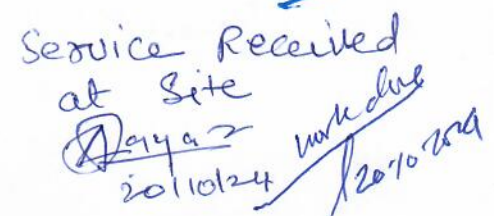 Service Received
at Site
20/10/24
work done
20/10/2024